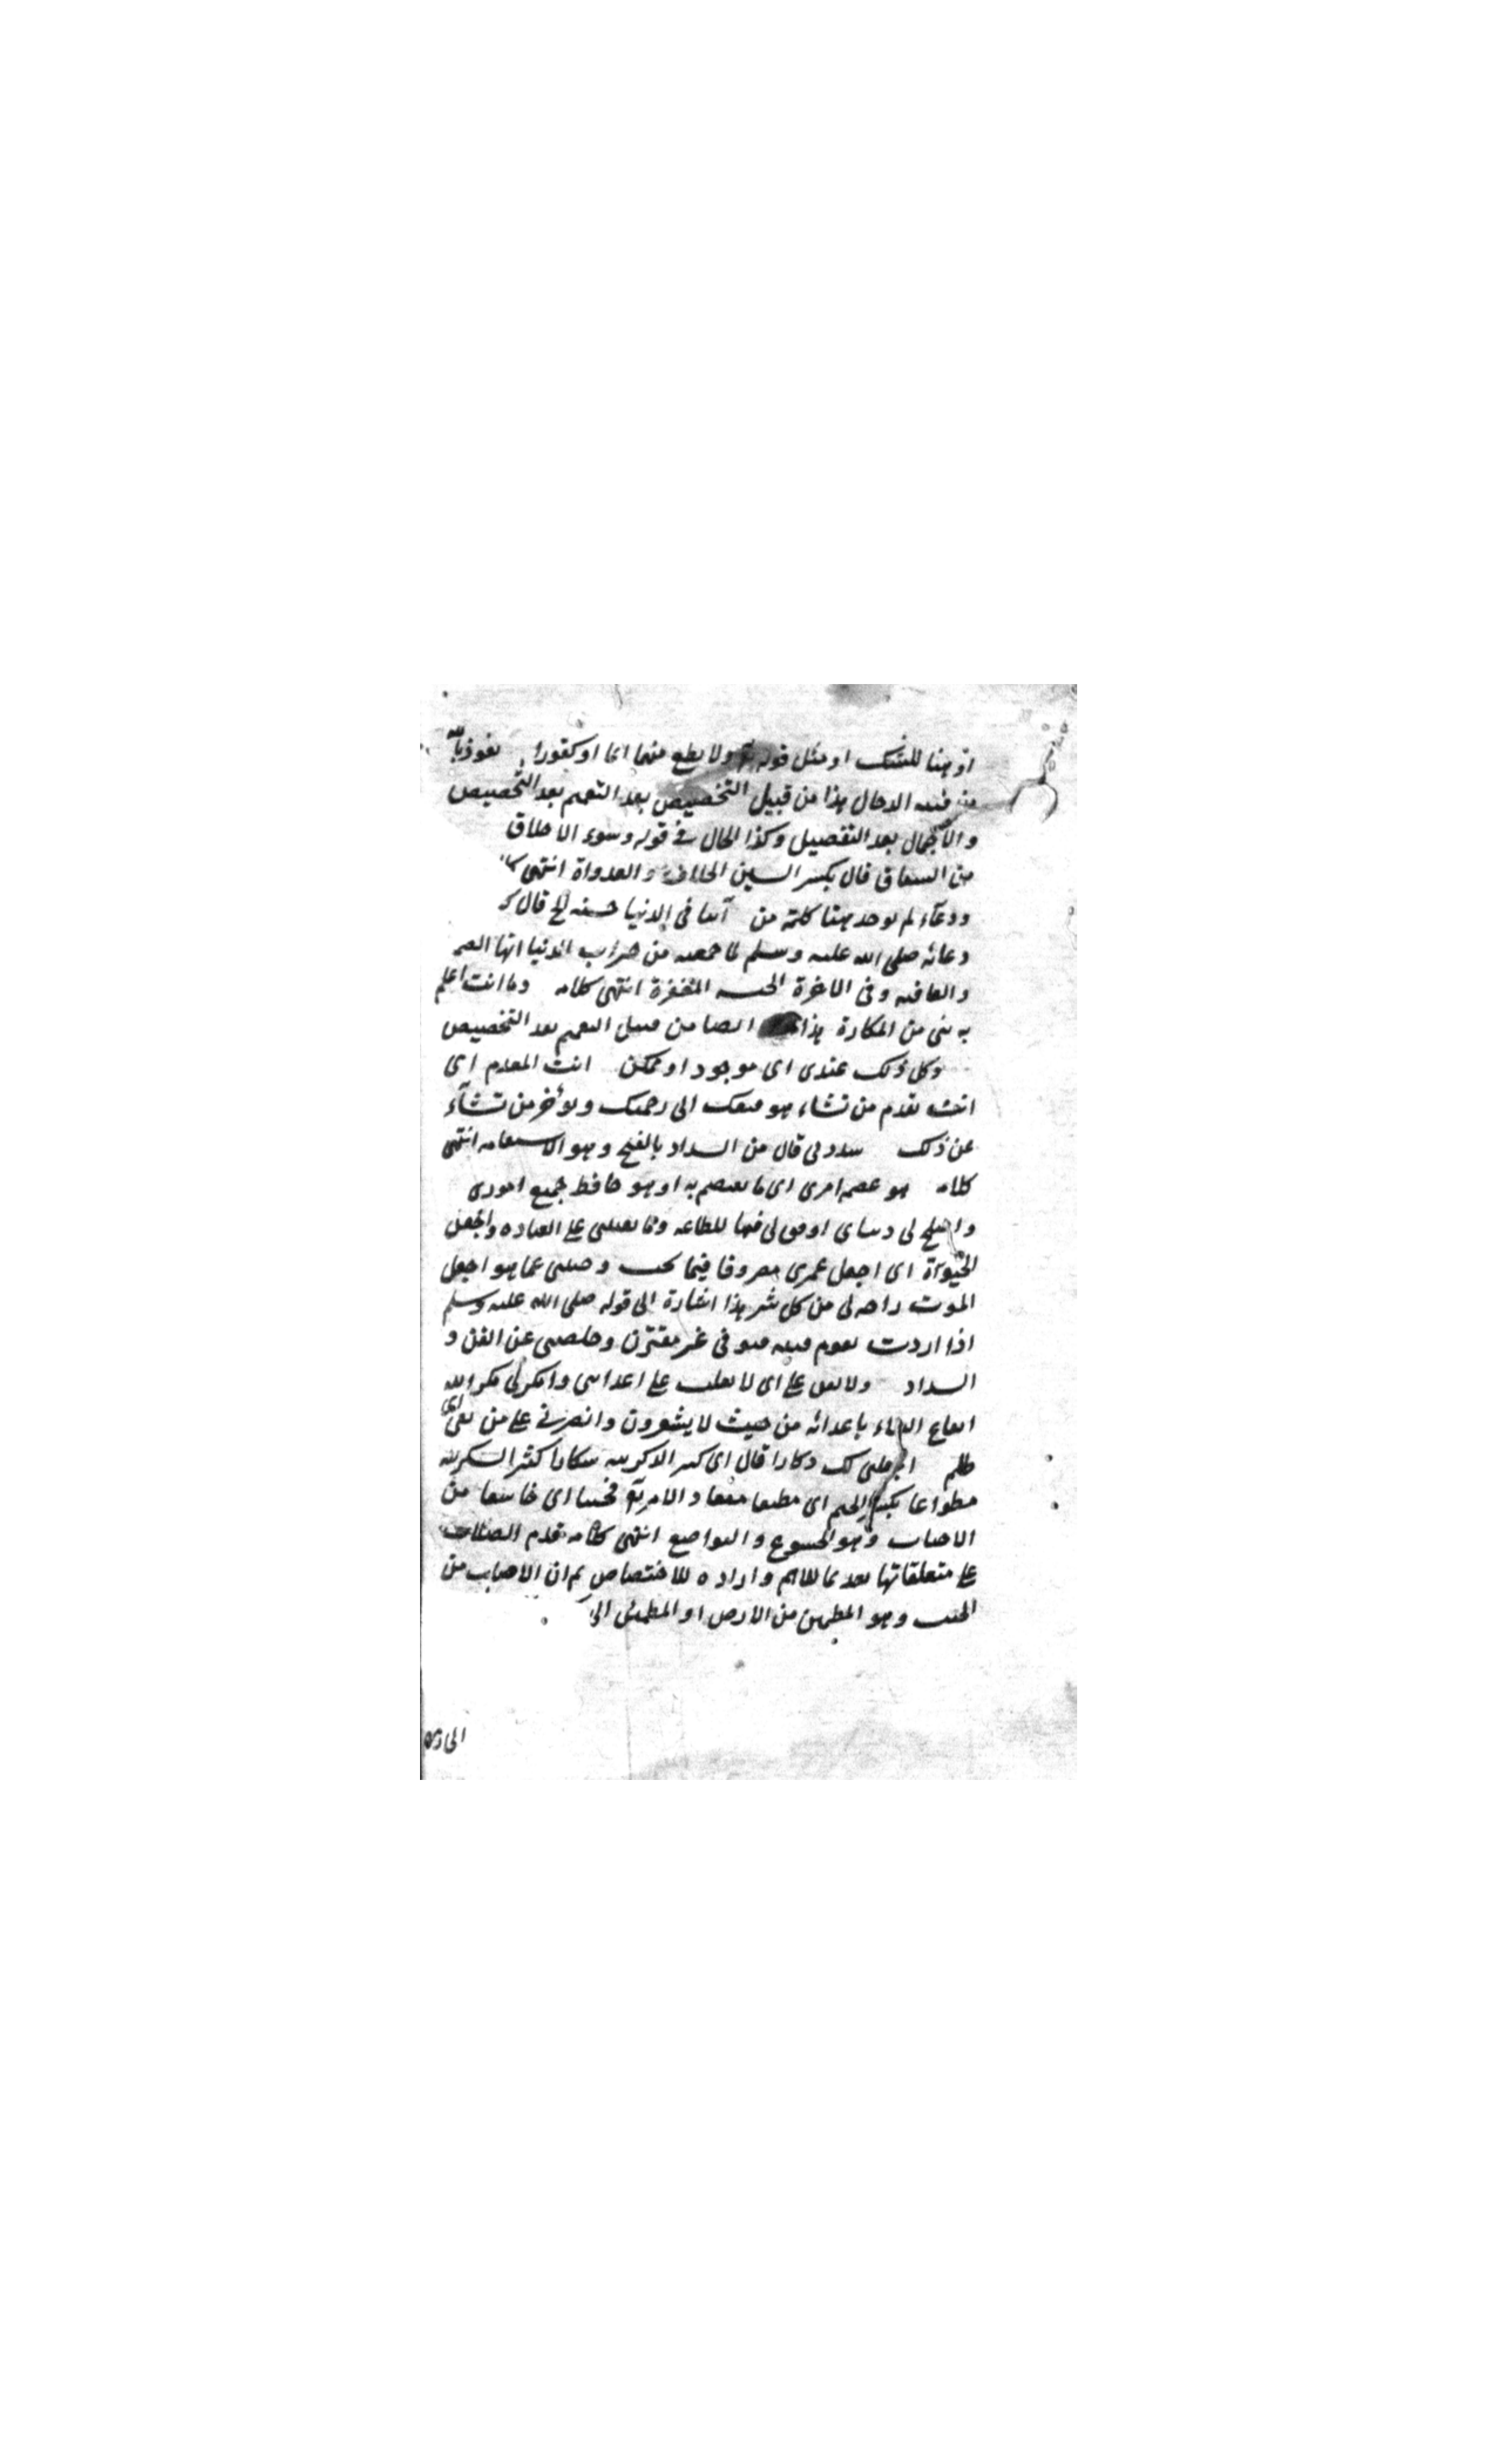 او هنا للشك او مثل قوله تع ولا تطع منهما اثما او كفورا نعوذ بالله
من فتنه الدجال هذا من قبيل التخصيص بعد التعميم بعد التخصيص
والاجمال بعد التفصيل وكذا الحال فى قوله وسوء الاخلاق
من السقاق قال بكسر السين الخلاف والعداوة انتهى
ودعاء لم يوجد هنا كلمة من آتنا فى الدنيا حسنه الخ قال
دعائه صلى الله عليه وسلم لما جمعت من الدنيا انها
والعافيه وفى الاخرة الجنه المغفرة انتهى كلامه وما انت اعلم
به منى من المكارة هذا ايضا من قبيل التعميم بعد التخصيص
وكل ذلك عندى اى موجود او ممكن انت المقدم اى
انت تقدم من تشاء هو الى رحمتك وتؤخر من تشآء
عن ذلك سددنى قال من السداد بالفتح وهو الاستقامه انتهى
كلامه هو عصمه امرى اى ما يعتصم به او هو حافظ جميع امورى
واصلح لى دنياى او وفق لى فيها للطاعه ومما يعيننى على العباده واجعل
الحيوة اى اجعل عمرى مصروفا فيما تحب وجنبنى عما هو اجعل
الموت راحه لى من كل شر هذا اشارة الى قوله صلى الله عليه وسلم
اذا اردت بقوم فتنه فتوفنى غير مفتون وخلصنى عن الفتن و
السداد ولا تعن على اى لا تغلب على اعدائى وامكر لى مكر الله
ايقاع البلاء باعدائه من حيث لا يشعرون وانصرنى على من بغى اى
ظلم اجعلنى لك ذكارا قال اى كثير الذكر شكارا كثير الشكر
مطواعا بكسر الميم اى مطيعا منقادا لامر تع مخبتا اى خاشعا من
الاخبات وهو الخشوع والتواضع انتهى كلامه قدم الصلات
على متعلقاتها تقديما للاهم واراده للاختصاص ثم ان الاخبات من
الخبت وهو المطمئن من الارض او المطمئن